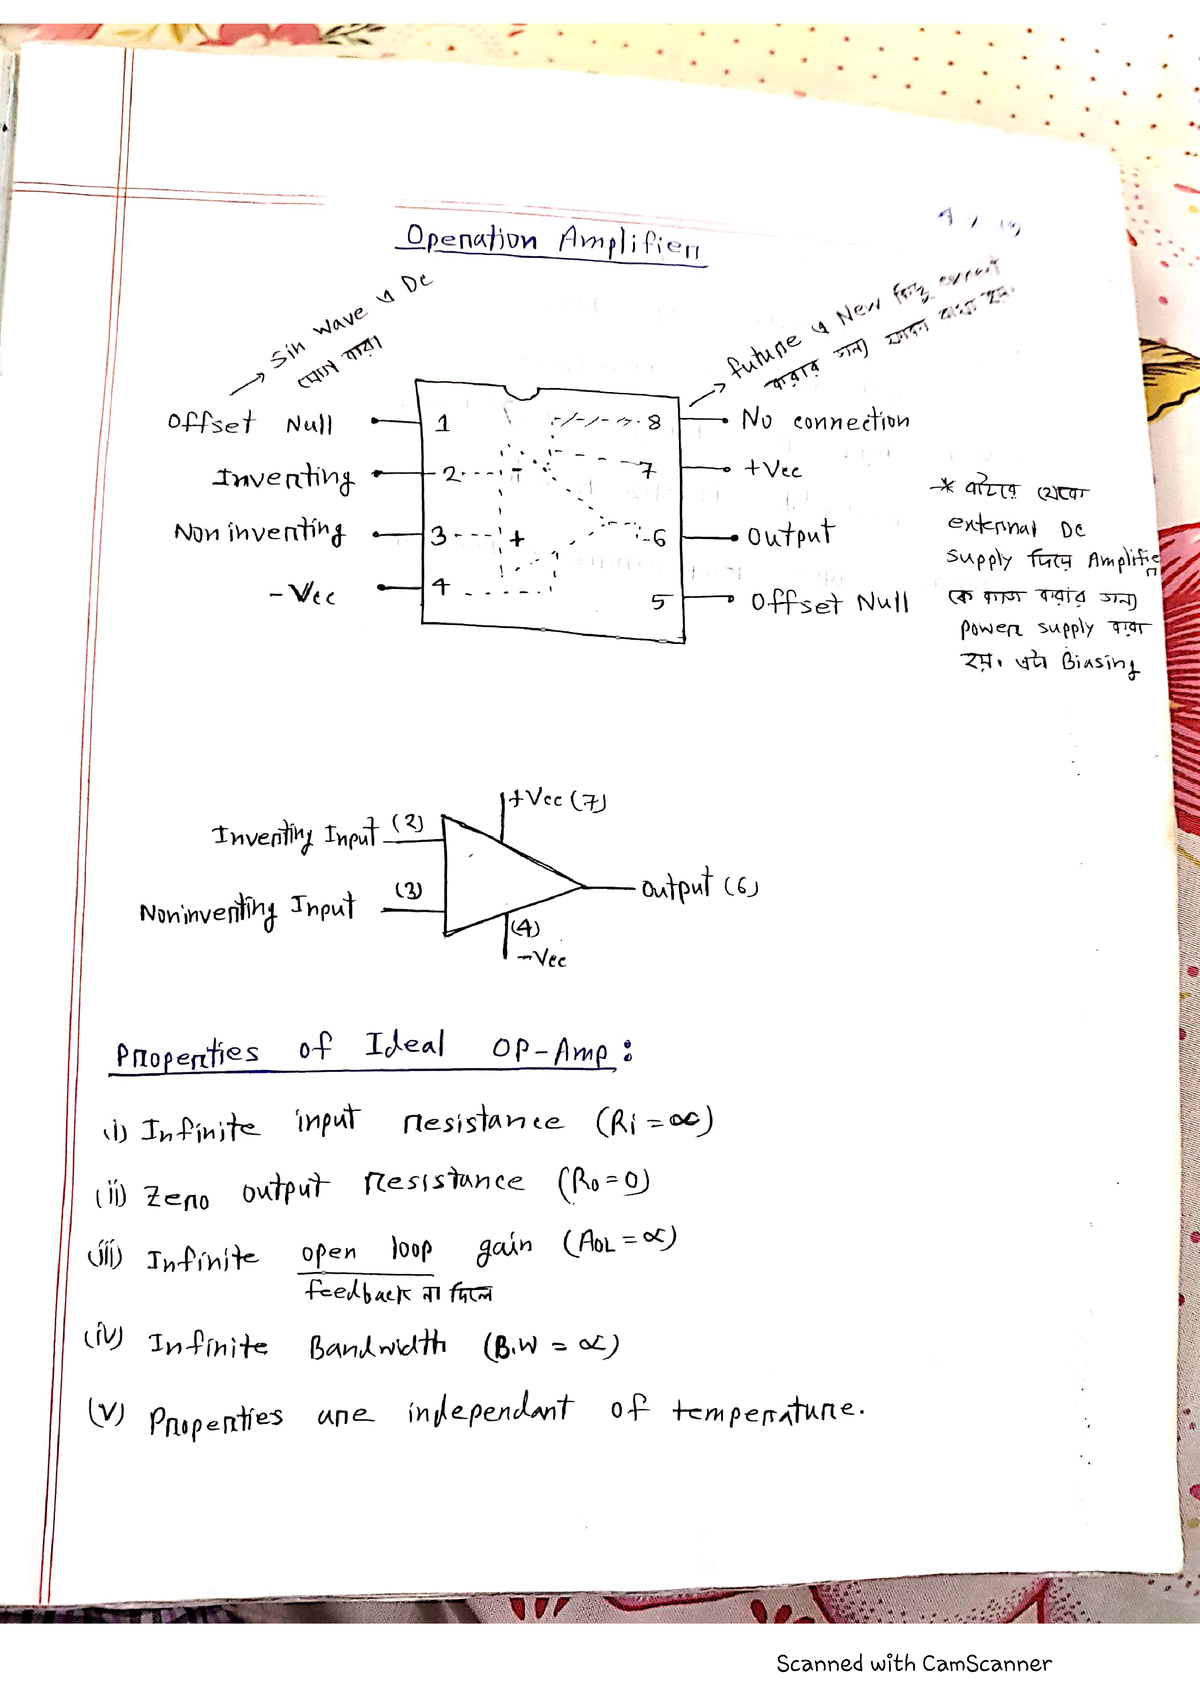 Operation Amplifier
→ Sin wave এ Dc
যোগ করা।
→ future এ New কিছু connect
করার জন্য ফাকা রাখা হয়।
Offset Null
1
8
No connection
Inverting
2
-
7
+Vcc
Non inverting
3
+
6
Output
-Vcc
4
5
Offset Null
* বাইরে থেকে
external Dc
supply দিয়ে Amplifier
কে কাজ করার জন্য
power supply করা
হয়। এটা Biasing
+Vcc (7)
Inverting Input (2)
Noninverting Input (3)
Output (6)
(4)
-Vcc
Properties of Ideal OP-Amp:
(i) Infinite input resistance (Ri = ∝)
(ii) Zero output resistance (Ro = 0)
(iii) Infinite open loop gain (AOL = ∝)
feedback না দিলে
(iv) Infinite Bandwidth (B.W = ∝)
(v) Properties are independant of temperature.
Scanned with CamScanner